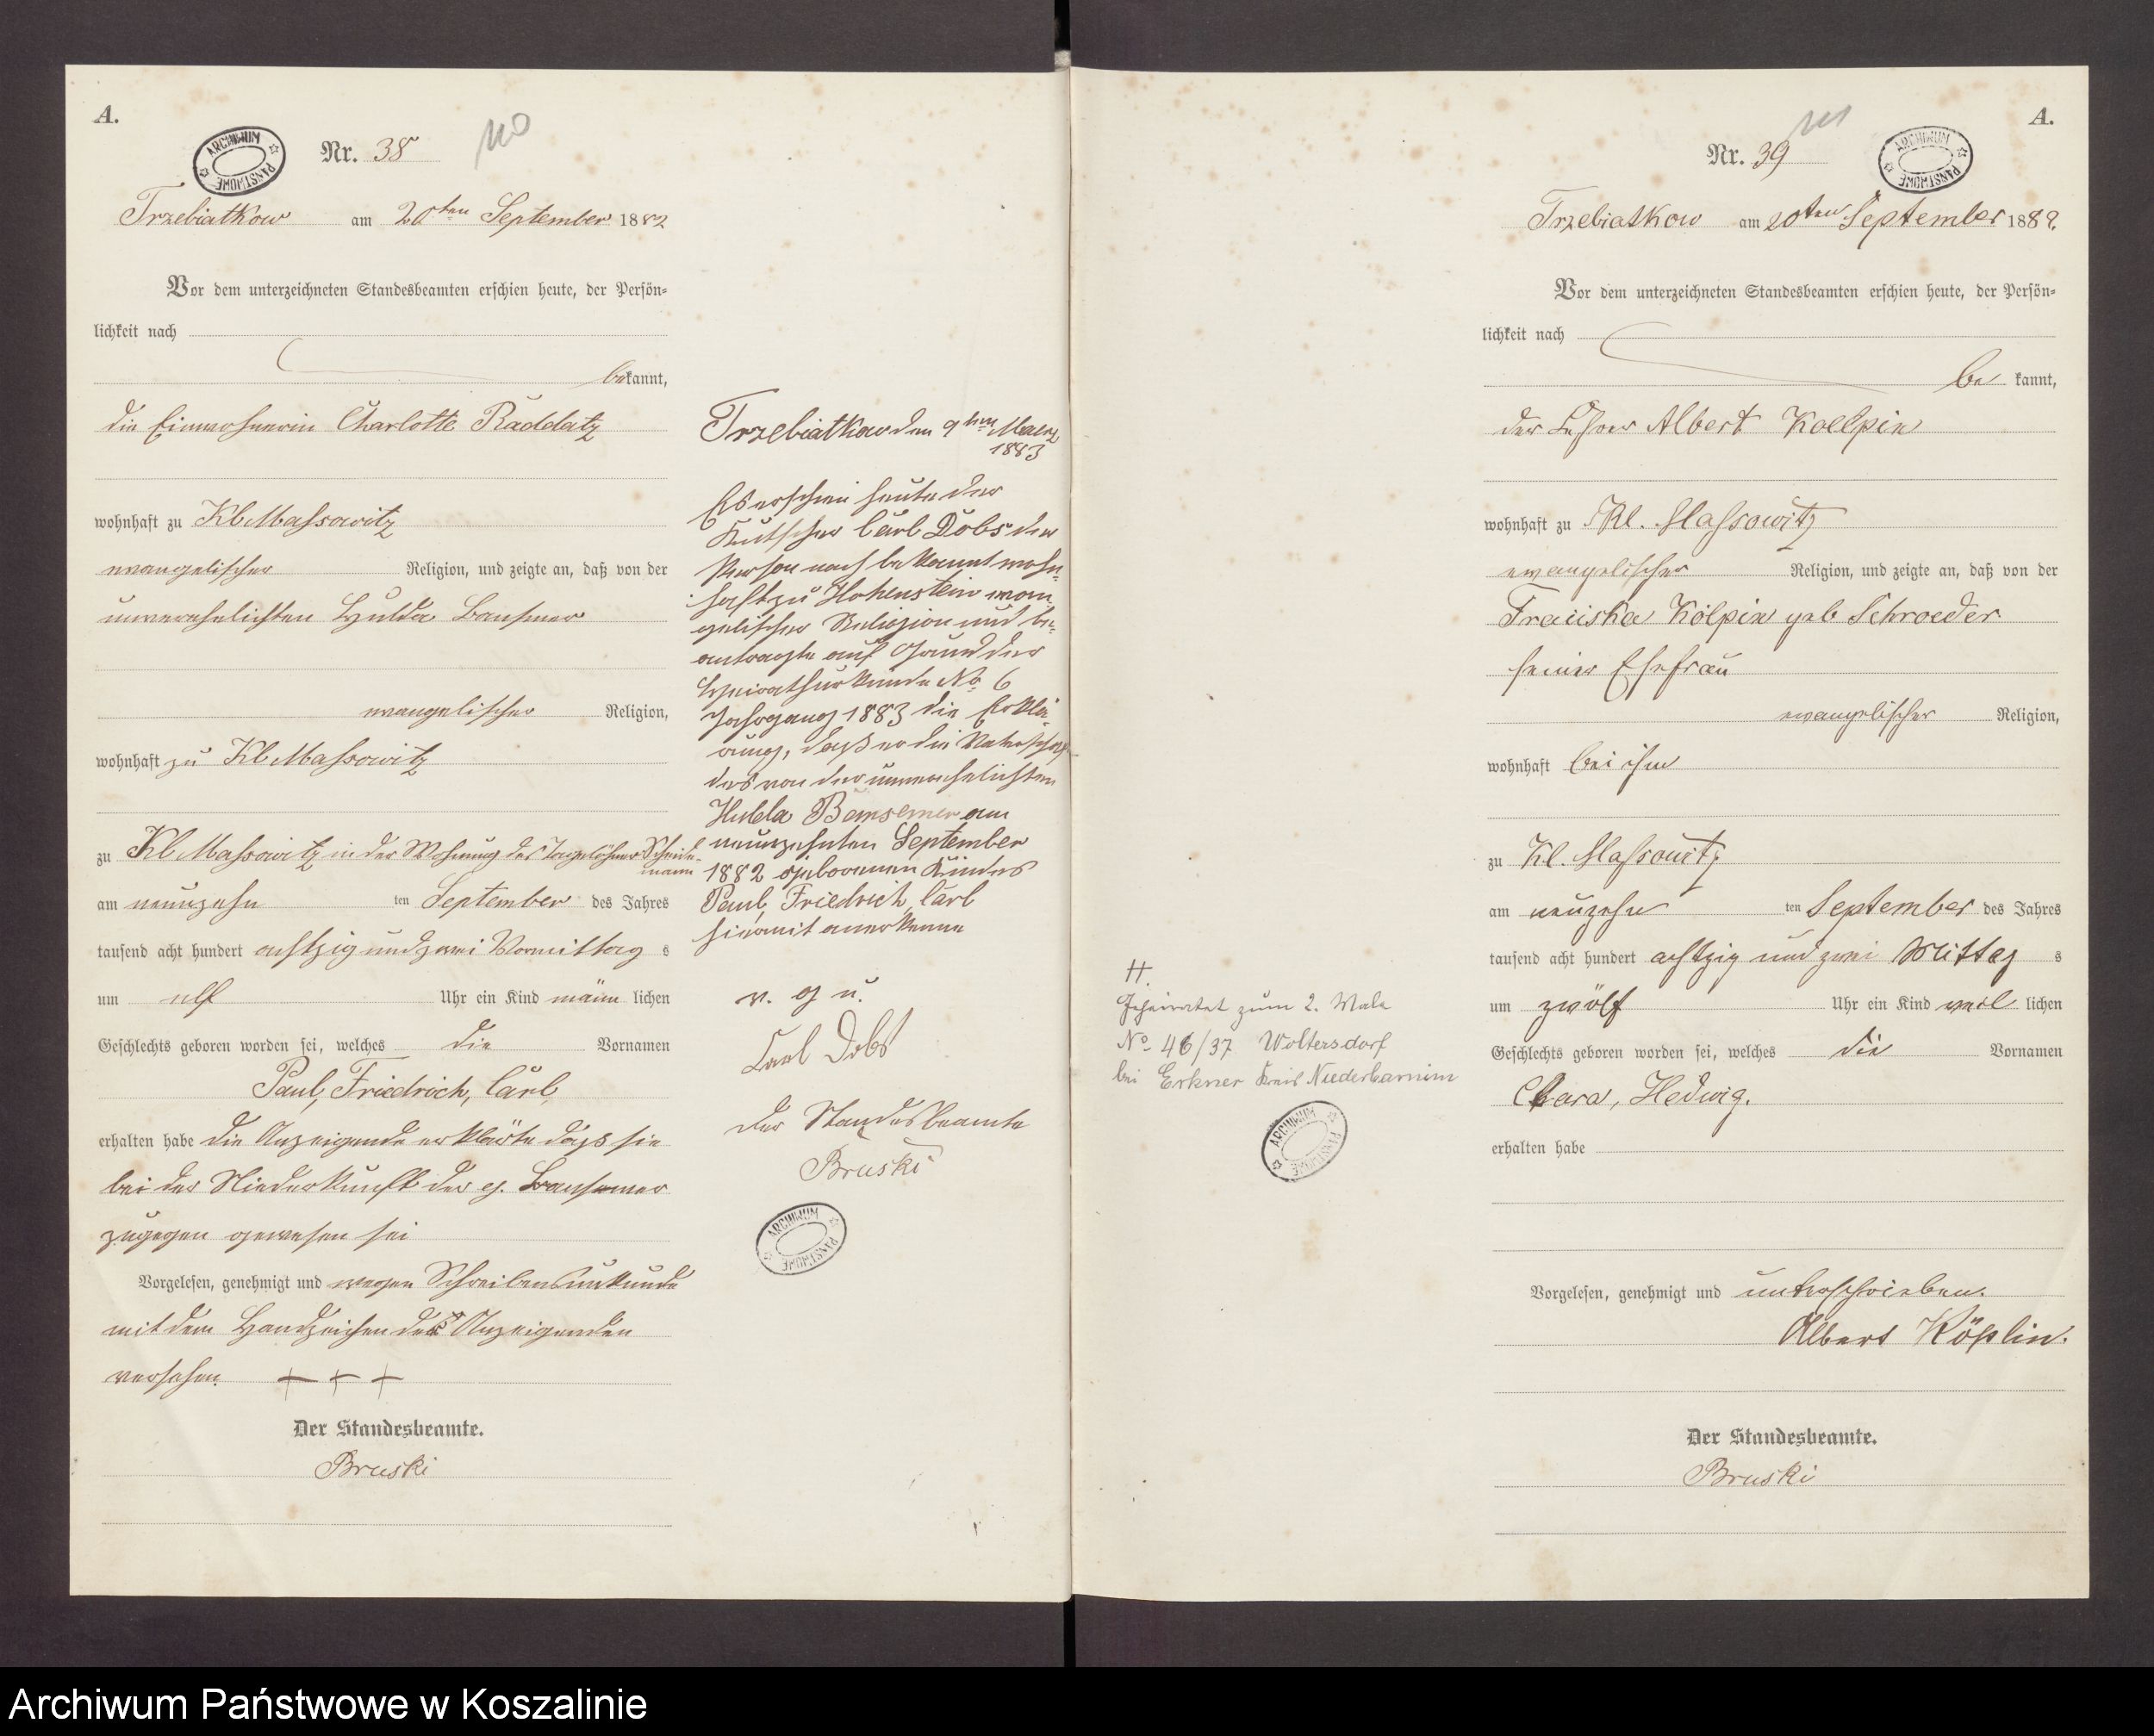 A.
ARCHIWUM PAŃSTWOWE
Nr. 38
110
Trzebiatkow am 20ten September 1882
Vor dem unterzeichneten Standesbeamten erschien heute, der Persön-
lichkeit nach
bekannt,
die Einwohnerin Charlotte Raddatz
wohnhaft zu Kl Massowitz
evangelischer Religion, und zeigte an, daß von der
unverehelichten Hulda
evangelischer Religion,
wohnhaft zu Kl Massowitz
zu Kl Massowitz in der Wohnung des Tagelöhner Scheide-
mann
am neunzehn ten September des Jahres
tausend acht hundert achtzig und zwei Vormittag s
um elf Uhr ein Kind männ lichen
Geschlechts geboren worden sei, welches die Vornamen
Paul, Friedrich, Carl,
erhalten habe die Anzeigende erklärte dass sie
bei der Niederkunft der
zugegen gewesen sei
Vorgelesen, genehmigt und wegen Schreibensunkunde
mit dem Handzeichen der Anzeigenden
versehen. + + +
Der Standesbeamte.
Bruski
Trzebiatkow den 9ten Maerz
1883
Es erschien heute der
Kutscher Carl Dobs der
Person nach bekannt wohn-
haft zu Hohenstein evan
gelischer Religion und be-
antragte auf Grund der
Heirathsurkunde No 6
Jahrgang 1883 die Erklä-
rung, daß er die Vaterschaft
des von der unverehelichten
Hulda am
neunzehnten September
1882 geborenen Kindes
Paul, Friedrich, Carl
hiermit anerkenne
v. g. u.
Carl Dobs
Der Standesbeamte
Bruski
ARCHIWUM PAŃSTWOWE
A.
Nr. 39
111
ARCHIWUM PAŃSTWOWE
Trzebiatkow am 20ten September 1882.
Vor dem unterzeichneten Standesbeamten erschien heute, der Persön-
lichkeit nach
be kannt,
der Lehrer Albert Koelpin
wohnhaft zu Kl. Massowitz
evangelischer Religion, und zeigte an, daß von der
Franziska Kölpin geb Schroeder
seiner Ehefrau
evangelischer Religion,
wohnhaft bei ihm
zu Kl. Massowitz
am neunzehn ten September des Jahres
tausend acht hundert achtzig und zwei Mittag s
um zwölf Uhr ein Kind weib lichen
Geschlechts geboren worden sei, welches die Vornamen
Clara, Hedwig.
erhalten habe
Vorgelesen, genehmigt und unterschrieben.
Albert Kölplin.
Der Standesbeamte.
Bruski
H.
Geheiratet zum 2. Male
No 46/37 Woltersdorf
bei Erkner Kreis Niederbarnim
ARCHIWUM PAŃSTWOWE
Archiwum Państwowe w Koszalinie